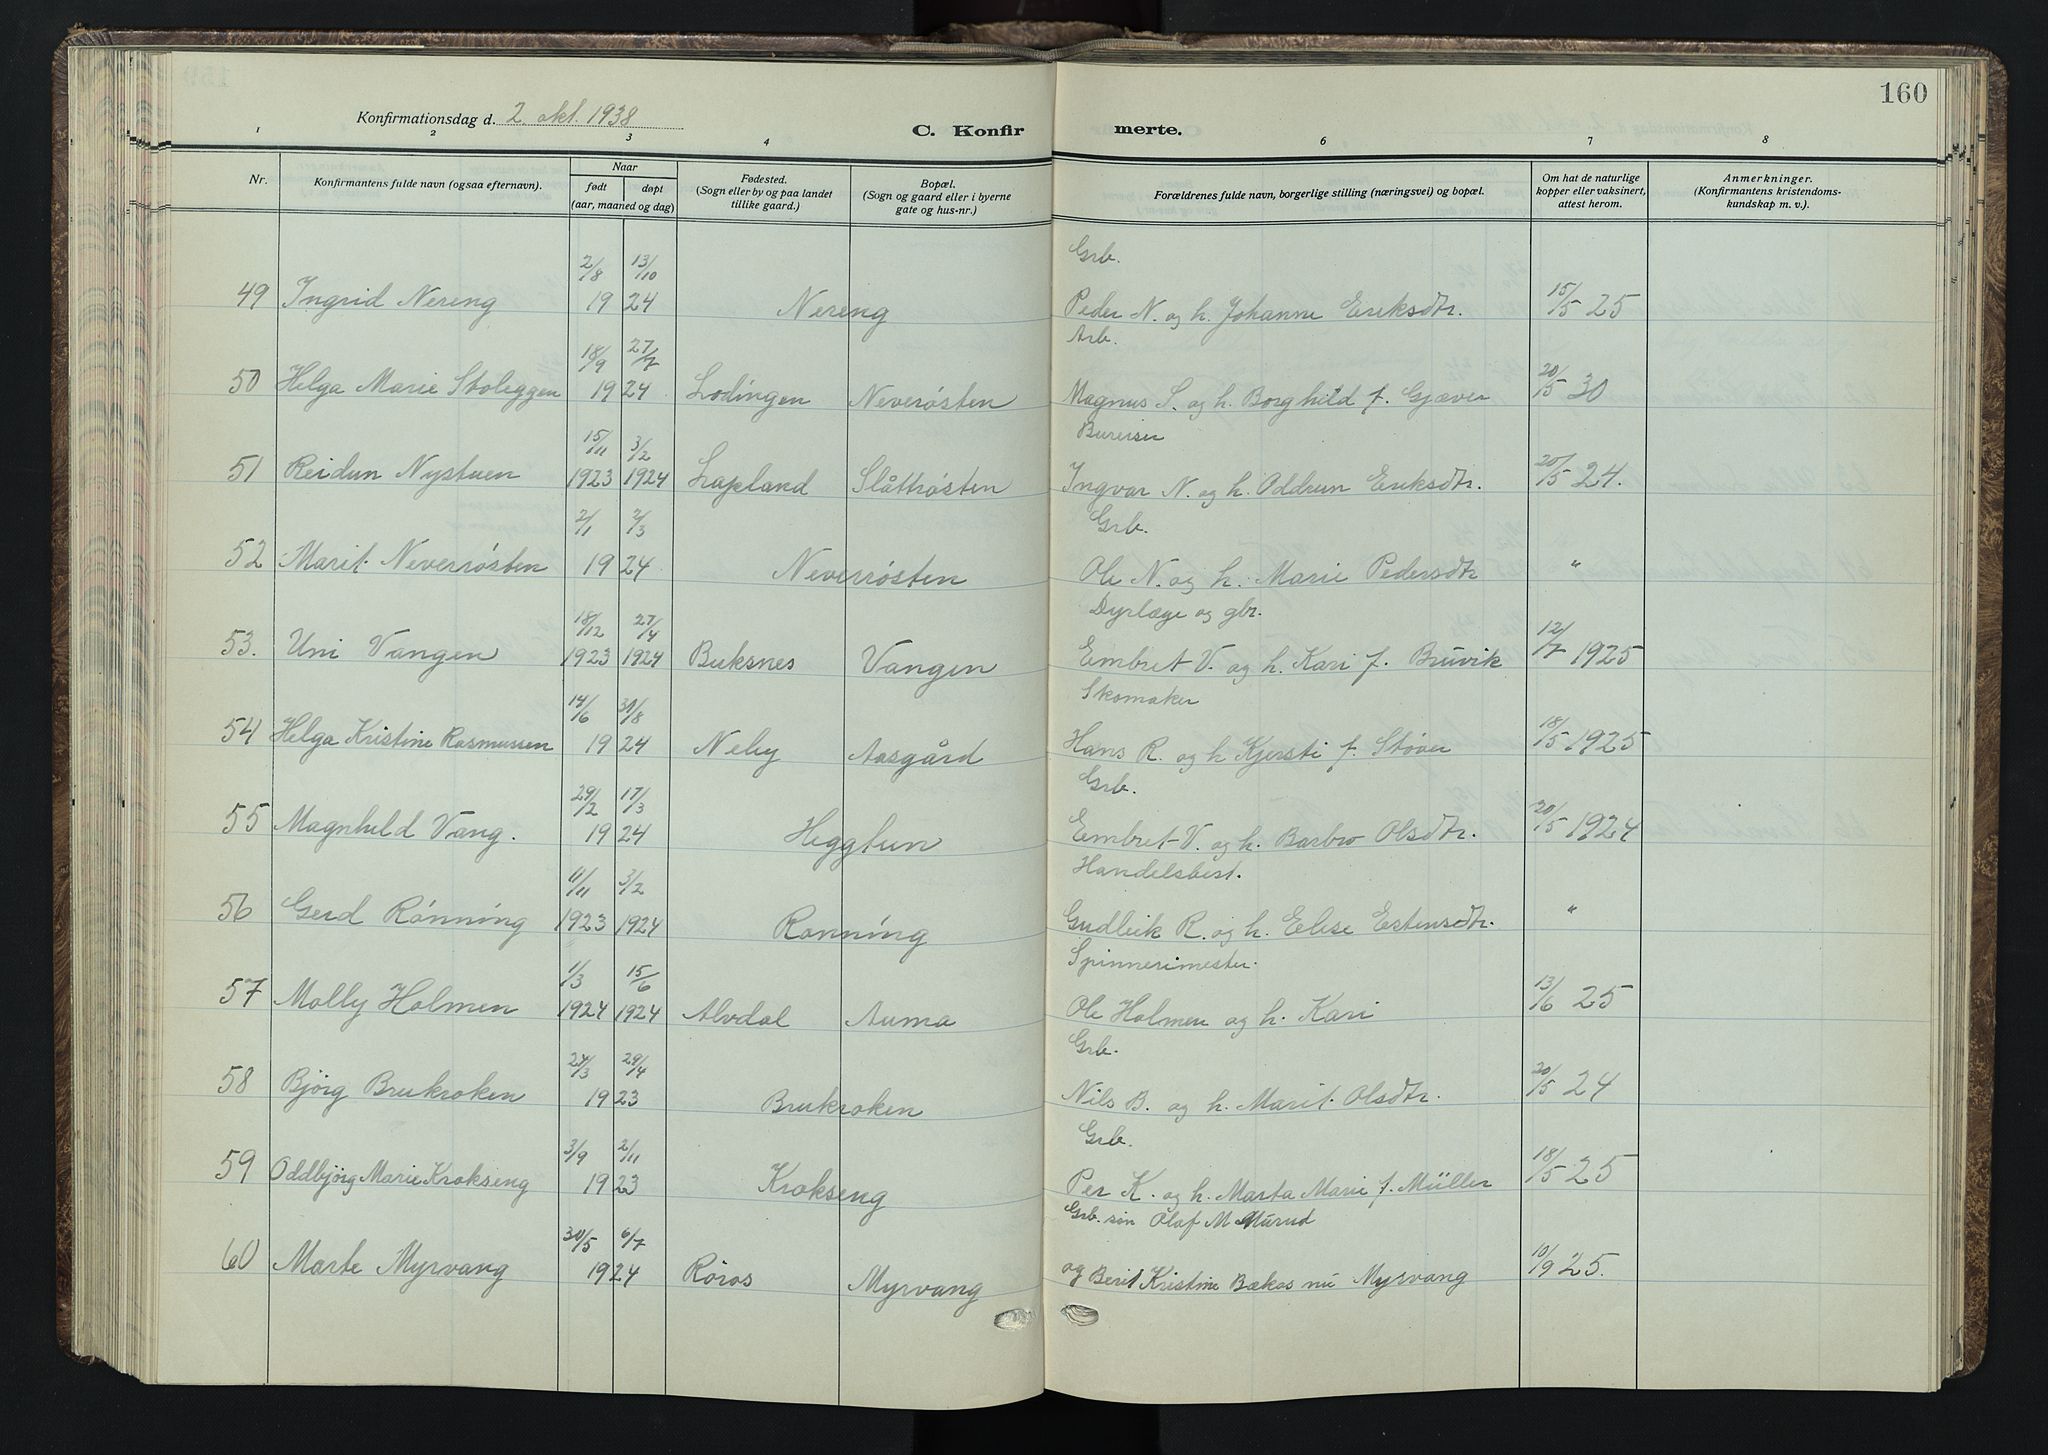 160
Konfirmationsdag d. 2. okt. 1938
C. Konfir merte.
1 2 3 4 6 7 8
Nr. Konfirmantens fulde navn (ogsaa efternavn). Naar født døpt (aar, maaned og dag) Fødested. (Sogn eller by og paa landet tillike gaard.) Bopæl. (Sogn og gaard eller i byerne gate og hus-nr.) Forældrenes fulde navn, borgerlige stilling (næringsvei) og bopæl. Om hat de naturlige kopper eller vaksinert, attest herom. Anmerkninger. (Konfirmantens kristendoms-kundskap m. v.).
2/8 13/10 Grb.
49 Ingrid Nereng 1924 Nereng Peder N. og h. Johanne Eriksdtr. 15/5 25
18/9 27/7 Arb.
50 Helga Marie Stoleggen 1924 Lødingen Neverøsten Magnus S. og h. Borghild f. Gjæver 20/5 30
15/11 3/2 Bureiser
51 Reidun Nystuen 1923 1924 Lapland Slåttrøsten Ingvar N. og h. Oddrun Eriksdtr. 20/5 24.
2/1 2/3 Grb.
52 Marit Neverrøsten 1924 Neverrøsten Ole N. og h. Marie Pedersdtr "
18/12 27/4 Dyrlæge og gbr.
53. Uni Vangen 1923 1924 Buksnes Vangen Embret V. og h. Kari f. Bruvik 12/7 1925
14/6 31/8 Skomaker
54 Helga Kristine Rasmussen 1924 Neby Aasgård Hans R. og h Kjersti f. Støver 18/5 1925
29/2 17/3 Grb.
55 Magnhild Vang. 1924 Heggtun Embret V. og h. Barbro Olsdtr. 20/5 1924
11/11 3/2 Handelsbest.
56 Gerd Rønning 1923 1924 Rønning Gudleik R. og h. Elise Estensdtr. "
1/3 15/6 Spinnerimester.
57 Molly Holmen 1924 1924 Alvdal Auma Ole Holmen og h. Kari 13/6 25
24/3 29/4 Grb.
58 Bjørg Brukroken 1923 Brukroken Nils B. og h. Marit Olsdtr. 20/5 24
3/9 2/11 Grb.
59 Oddbjørg Marie Krokseng 1923 Krokseng Per K. og h. Marta Marie f. Müller 18/5 25
30/5 6/7 Grb. søn Olaf M. Murud
60 Marte Myrvang 1924 Røros Myrvang og Berit Kristine Bækos nu Myrvang 10/9 25.